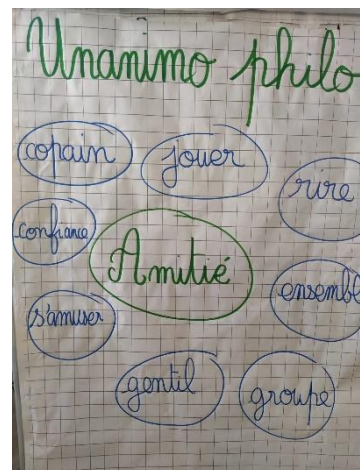 Unanimo philo
copain
jouer
rire
confiance
Amitié
ensembl
s'amuser
gentil
groupe